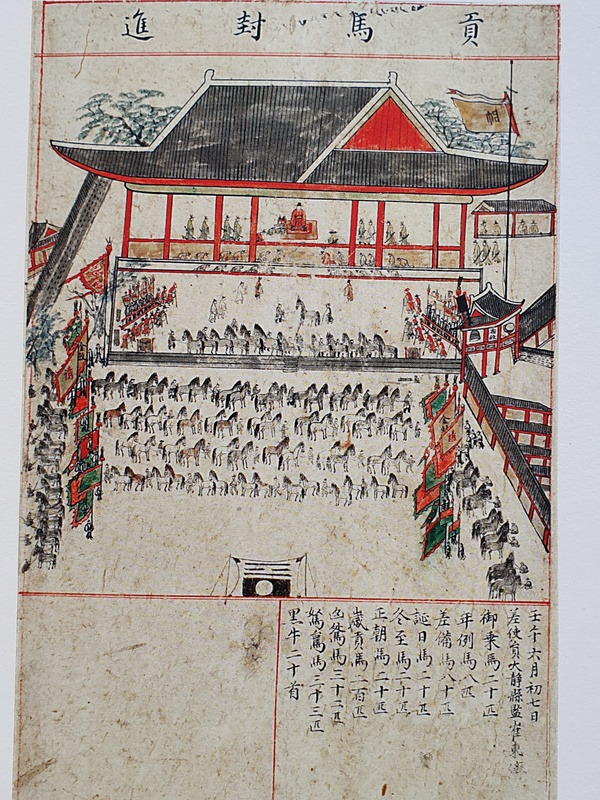 貢馬封進
帥
壬午六月初七日
差使員大靜縣監崔東濟
御乘馬二十匹
年例馬八匹
差備馬八十匹
誕日馬二十匹
冬至馬二十匹
正朝馬二十匹
歲貢馬二百匹
凶咎馬三十二匹
駑駘馬三十三匹
黑牛二十首